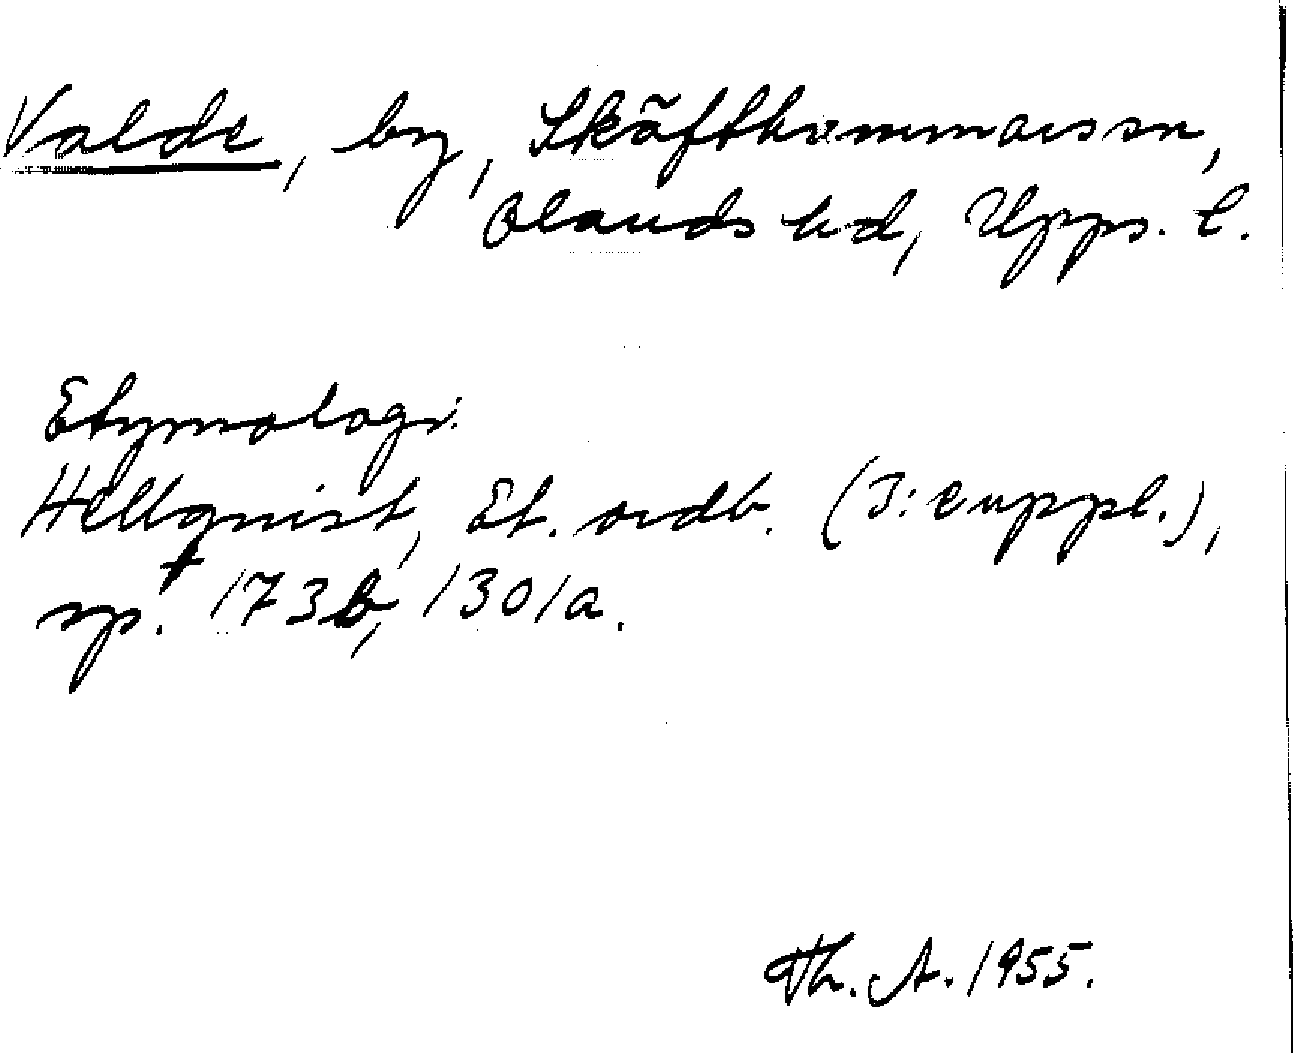 Valde, by, Skäfthammars sn,
Olands hd, Upps. l.
Etymologi:
Hellquist, Et. ordb. (3: e uppl.),
sp. 173b, 1301a.
Th. A. 1955.